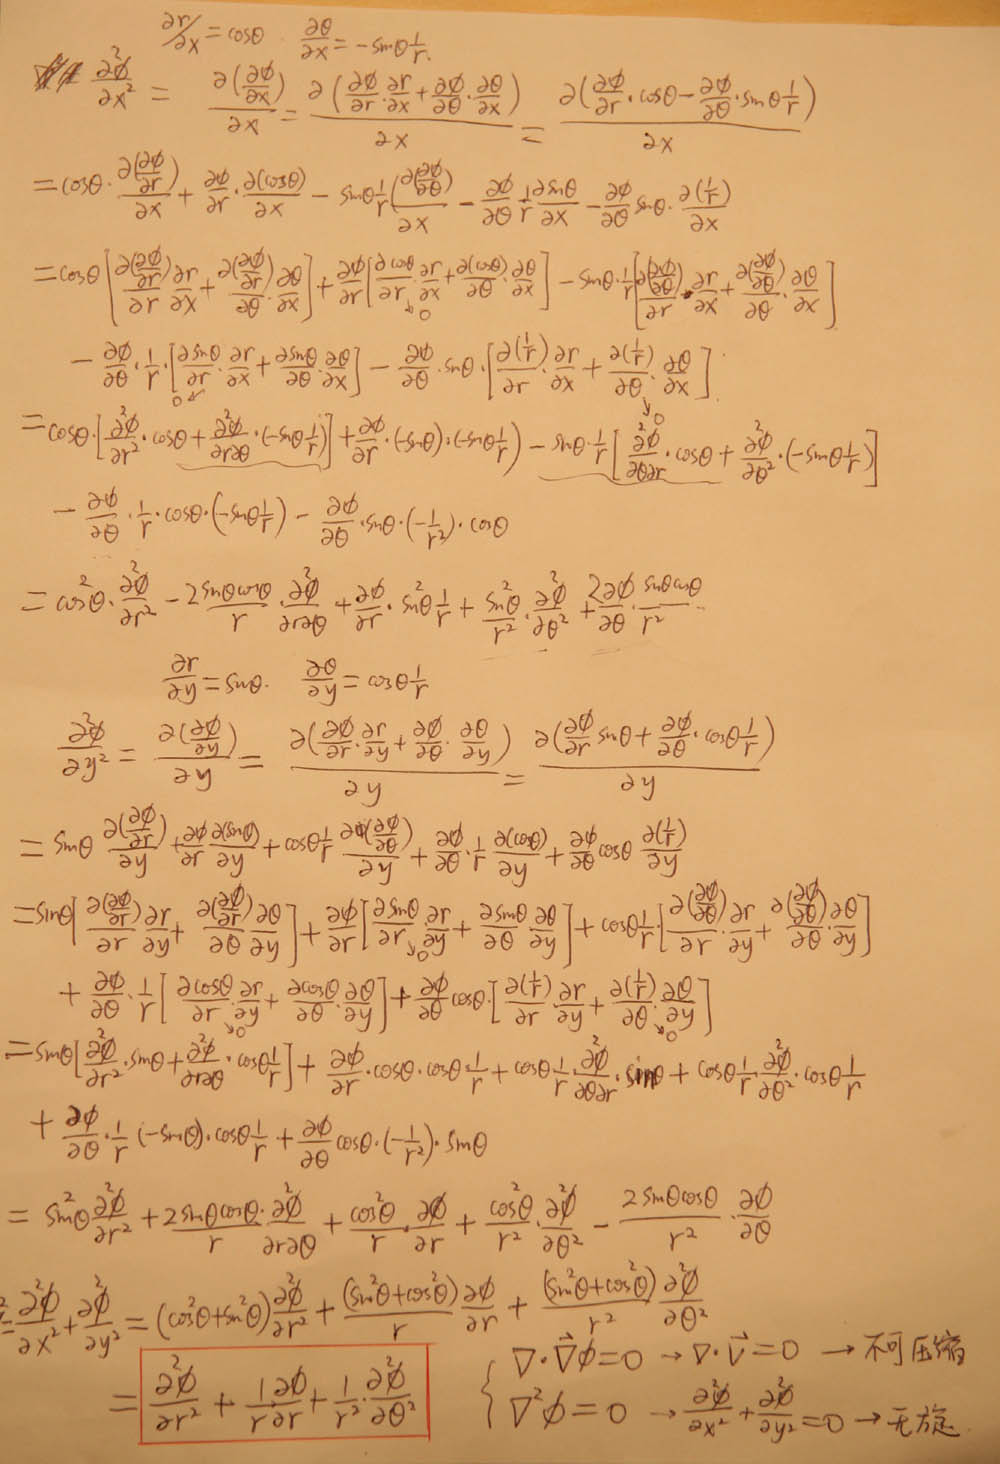 ∂r/∂x = cosθ  ∂θ/∂x = -sinθ 1/r.
∂²φ/∂x² = ∂(∂φ/∂x)/∂x = ∂(∂φ/∂r·∂r/∂x + ∂φ/∂θ·∂θ/∂x)/∂x = ∂(∂φ/∂r·cosθ - ∂φ/∂θ·sinθ 1/r)/∂x
= cosθ·∂(∂φ/∂r)/∂x + ∂φ/∂r·∂(cosθ)/∂x - sinθ 1/r(∂(∂φ/∂θ)/∂x - ∂φ/∂θ 1/r ∂sinθ/∂x - ∂φ/∂θ sinθ·∂(1/r)/∂x
= cosθ[∂(∂φ/∂r)/∂r ∂r/∂x + ∂(∂φ/∂r)/∂θ·∂θ/∂x] + ∂φ/∂r[∂cosθ/∂r·∂r/∂x + ∂(cosθ)/∂θ·∂θ/∂x] - sinθ·1/r[∂(∂φ/∂θ)/∂r·∂r/∂x + ∂(∂φ/∂θ)/∂θ·∂θ/∂x]
↘0
- ∂φ/∂θ·1/r·[∂sinθ/∂r·∂r/∂x + ∂sinθ/∂θ·∂θ/∂x] - ∂φ/∂θ·sinθ·[∂(1/r)/∂r·∂r/∂x + ∂(1/r)/∂θ·∂θ/∂x]
0↙ ↘0
= cosθ·[∂²φ/∂r²·cosθ + ∂²φ/∂r∂θ·(-sinθ 1/r)] + ∂φ/∂r·(-sinθ)·(-sinθ 1/r) - sinθ·1/r[∂²φ/∂θ∂r·cosθ + ∂²φ/∂θ²·(-sinθ 1/r)]
- ∂φ/∂θ·1/r·cosθ·(-sinθ 1/r) - ∂φ/∂θ·sinθ·(-1/r²)·cosθ
= cos²θ·∂²φ/∂r² - 2sinθcosθ/r·∂²φ/∂r∂θ + ∂φ/∂r·sin²θ 1/r + sin²θ/r²·∂²φ/∂θ² + 2∂φ/∂θ·sinθcosθ/r²
∂r/∂y = sinθ.  ∂θ/∂y = cosθ 1/r
∂²φ/∂y² = ∂(∂φ/∂y)/∂y = ∂(∂φ/∂r·∂r/∂y + ∂φ/∂θ·∂θ/∂y)/∂y = ∂(∂φ/∂r sinθ + ∂φ/∂θ·cosθ 1/r)/∂y
= sinθ ∂(∂φ/∂r)/∂y + ∂φ/∂r ∂(sinθ)/∂y + cosθ 1/r ∂(∂φ/∂θ)/∂y + ∂φ/∂θ·1/r ∂(cosθ)/∂y + ∂φ/∂θ cosθ ∂(1/r)/∂y
= sinθ[∂(∂φ/∂r)/∂r ∂r/∂y + ∂(∂φ/∂r)/∂θ ∂θ/∂y] + ∂φ/∂r[∂sinθ/∂r·∂r/∂y + ∂sinθ/∂θ ∂θ/∂y] + cosθ 1/r·[∂(∂φ/∂θ)/∂r·∂r/∂y + ∂(∂φ/∂θ)/∂θ·∂θ/∂y]
↘0
+ ∂φ/∂θ·1/r[∂cosθ/∂r·∂r/∂y + ∂cosθ/∂θ·∂θ/∂y] + ∂φ/∂θ cosθ·[∂(1/r)/∂r·∂r/∂y + ∂(1/r)/∂θ·∂θ/∂y]
↘0 ↘0
= sinθ[∂²φ/∂r²·sinθ + ∂²φ/∂r∂θ·cosθ 1/r] + ∂φ/∂r·cosθ·cosθ·1/r + cosθ·1/r·∂²φ/∂θ∂r·sinθ + cosθ 1/r·∂²φ/∂θ²·cosθ 1/r
+ ∂φ/∂θ·1/r·(-sinθ)·cosθ 1/r + ∂φ/∂θ cosθ·(-1/r²)·sinθ
= sin²θ ∂²φ/∂r² + 2sinθcosθ/r·∂²φ/∂r∂θ + cos²θ/r·∂φ/∂r + cos²θ/r²·∂²φ/∂θ² - 2sinθcosθ/r²·∂φ/∂θ
∂²φ/∂x² + ∂²φ/∂y² = (cos²θ+sin²θ)∂²φ/∂r² + (sin²θ+cos²θ)/r ∂φ/∂r + (sin²θ+cos²θ)/r² ∂²φ/∂θ²
= ∂²φ/∂r² + 1/r ∂φ/∂r + 1/r²·∂²φ/∂θ²
{ ∇·∇⃗φ=0 → ∇·v⃗=0 → 不可压缩
∇²φ=0 → ∂²φ/∂x² + ∂²φ/∂y² = 0 → 无旋.